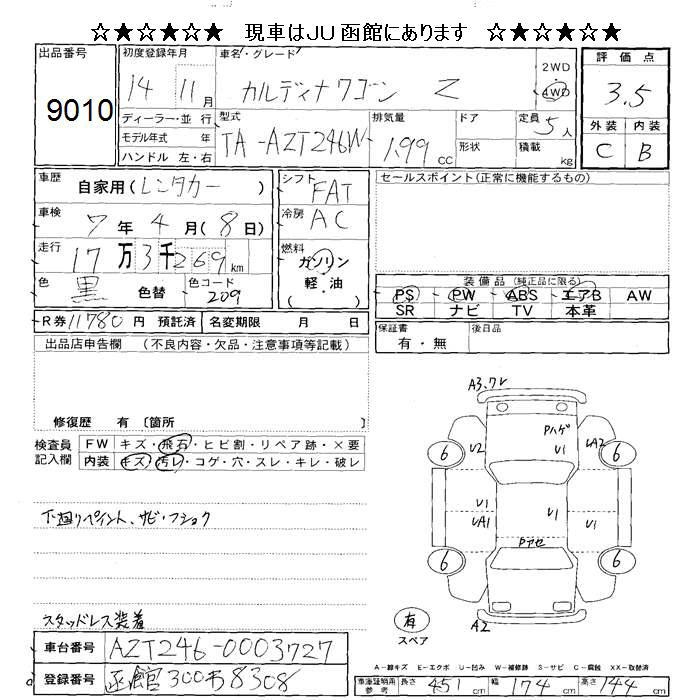 ☆★☆★☆★ 現車はJU函館にあります ☆★☆★☆★
出品番号 9010
初度登録年月 14 11月
車名・グレード カルディナワゴン Z
2WD
4WD
評価点 3.5
外装 内装
C B
ディーラー・並行
モデル年式 年
ハンドル 左・右
型式 TA-AZT246W
排気量 1.99 cc
ドア
形状
定員 5人
積載 kg
車歴 自家用(レンタカー)
シフト FAT
車検 7年4月(8日)
冷房 AC
走行 17万3千269km
燃料 ガソリン
軽・油
( )
色 黒 色替 色コード 209
R券 11780円 預託済 名変期限 月 日
セールスポイント(正常に機能するもの)
装備品(純正品に限る)
PS PW ABS エアB AW
SR ナビ TV 本革
保証書 有・無
後日品
出品店申告欄 (不良内容・欠品・注意事項等記載)
修復歴 有 〔箇所 〕
検査員記入欄
FW キズ・飛石・ヒビ割・リペア跡・×要
内装 キズ・汚レ・コゲ・穴・スレ・キレ・破レ
下廻りペイント、サビ・フショク
スタッドレス装着
車台番号 AZT246-0003727
登録番号 函館300わ8308
A3.ワレ
Pハゲ
U2 U1 UA2
6 6
U1 U1
UA1 U1
Pアセ
6 6
有
スペア
A2
A-線キズ E-エクボ U-凹み W-補修跡 S-サビ C-腐蝕 XX-取替済
車庫証明用参考 長さ 451cm 幅 174cm 高さ 144cm